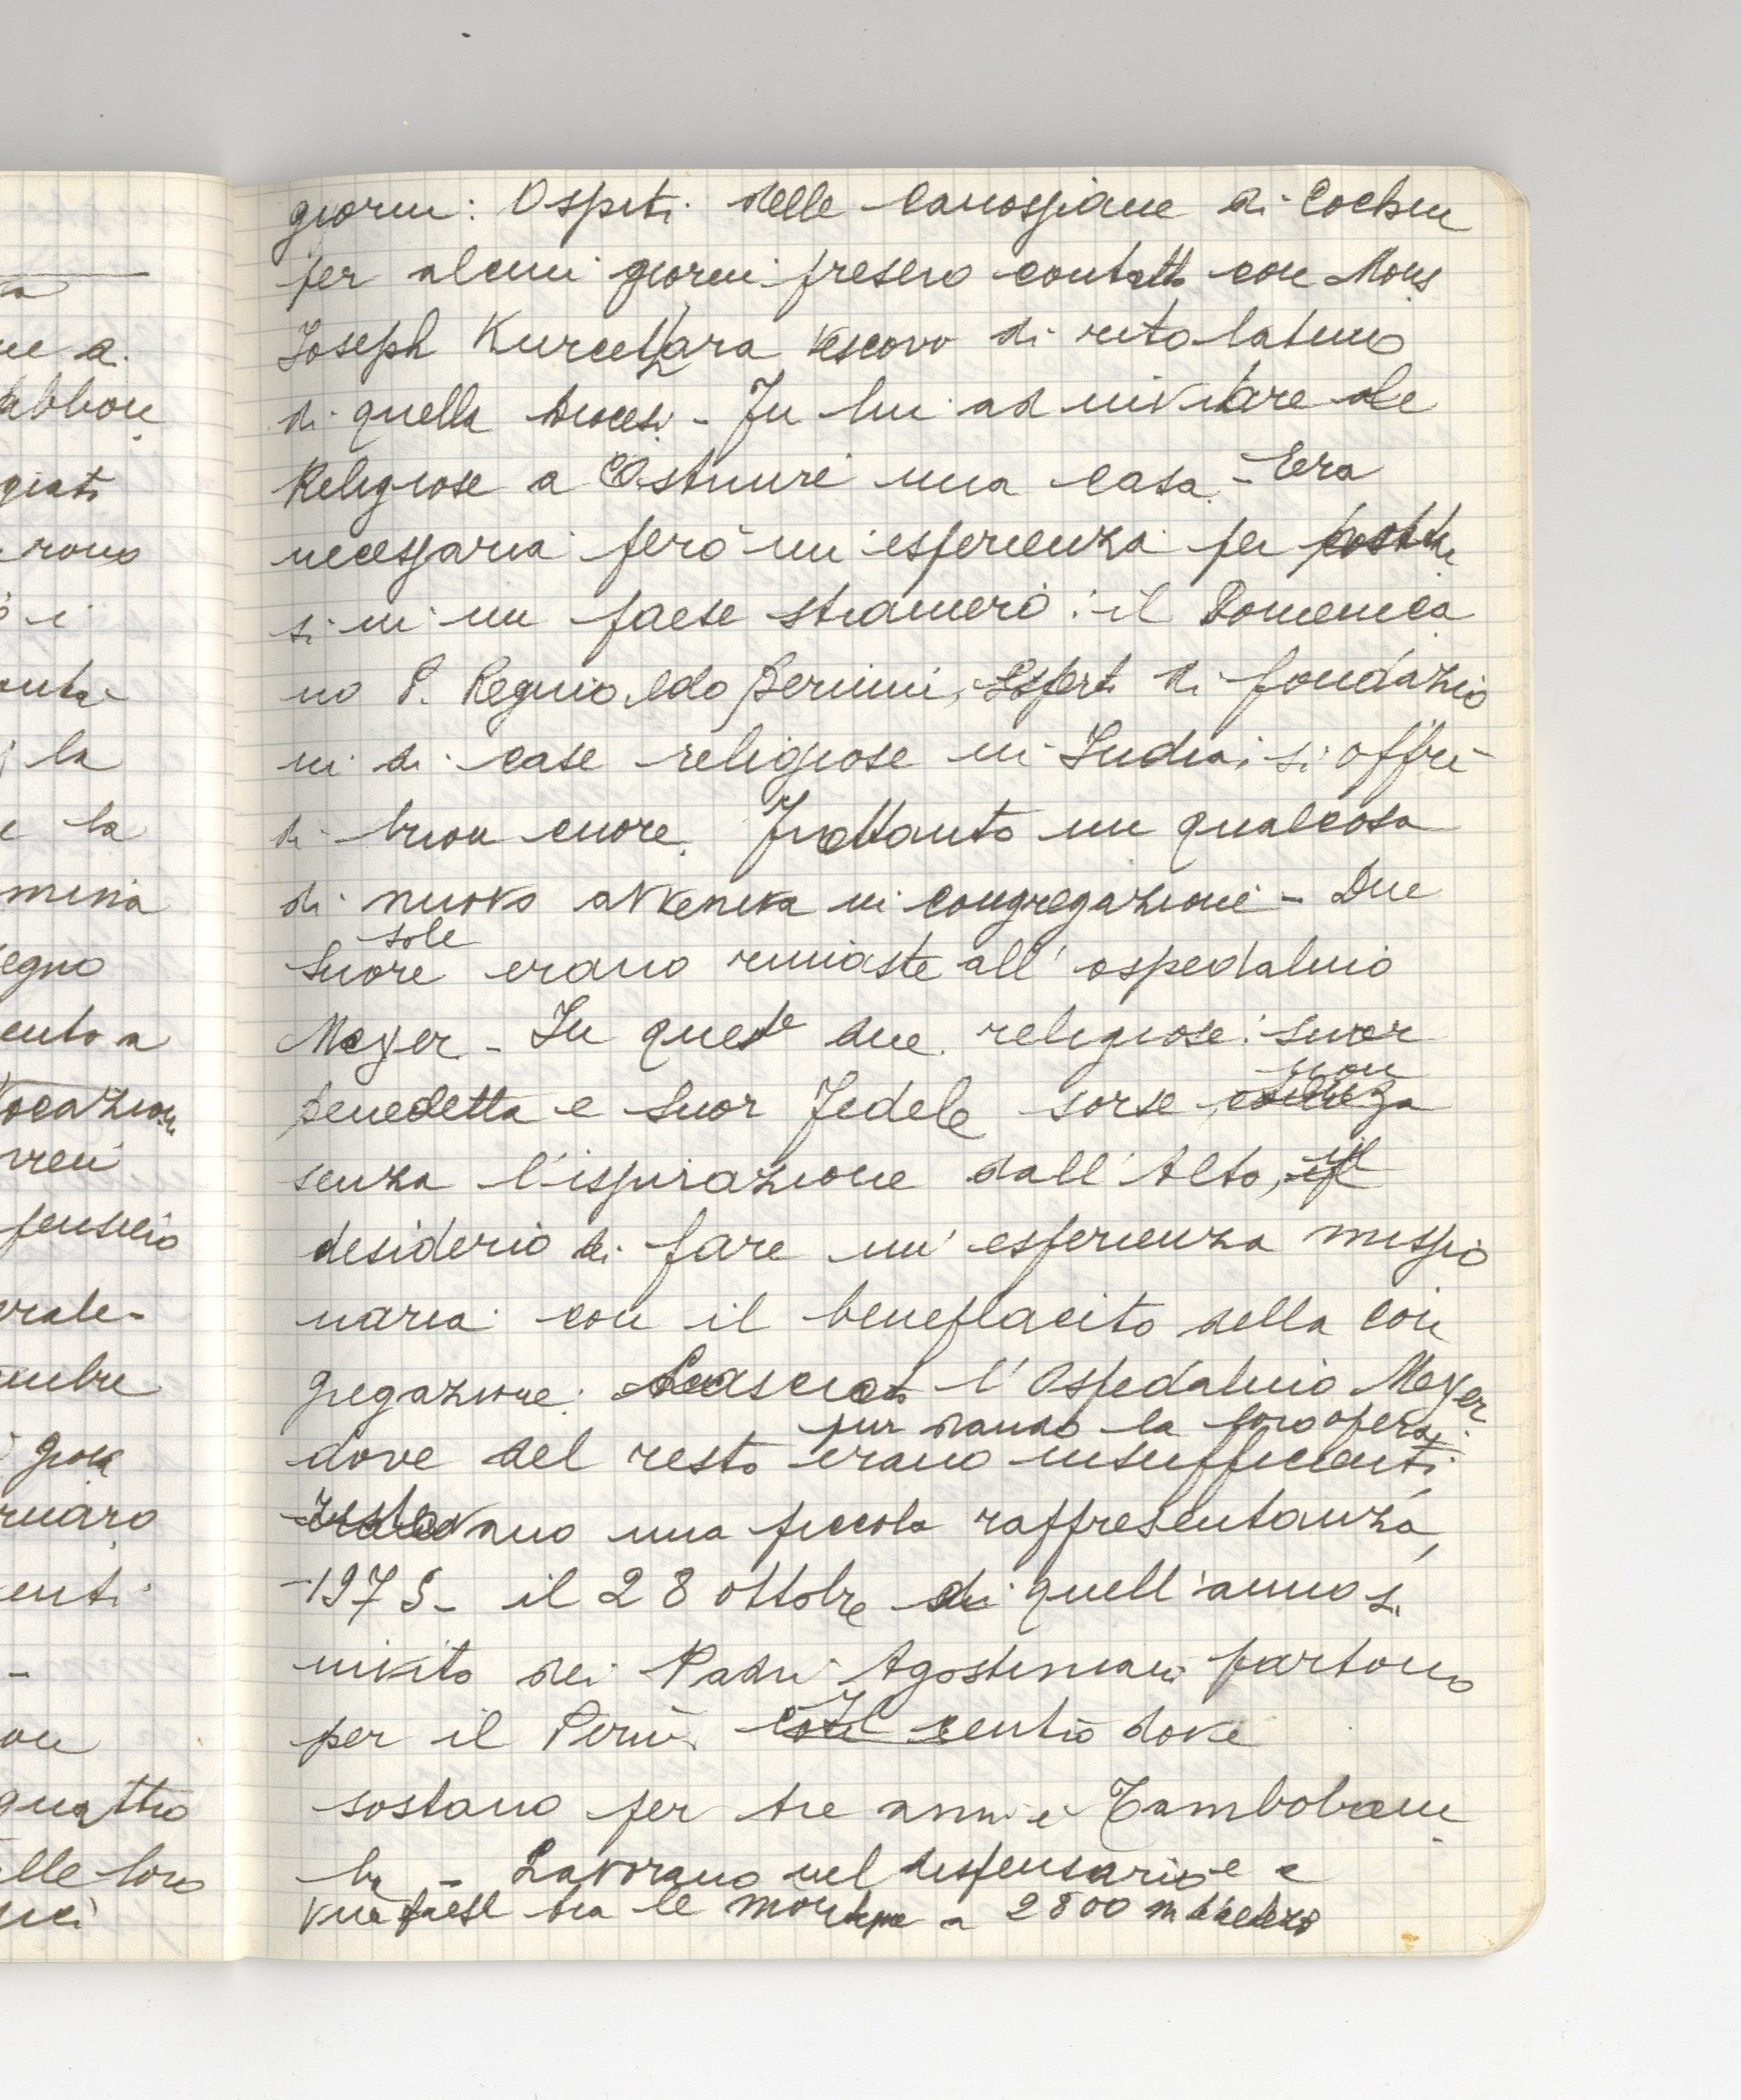 giorni: Ospiti delle Canossiane di Cochin
per alcuni giorni presero contatto con Mons
Joseph Kureethara Vescovo di rito latino
di quella diocesi - Fu lui ad invitare le
Religiose a costruire una casa. - Era
necessaria però un'esperienza per
si in un paese straniero: il Domenica
no P. Reginaldo Bernini, esperto di fondazio
ni di case religiose in India, si offrì
di buon cuore. Frattanto un qualcosa
di nuovo avveniva in congregazione - Due
sole
Suore erano rimaste all'ospedalino
Meyer - In queste due religiose: suor
non
Benedetta e Suor Fedele sorse
senza l'ispirazione dall'Alto, il
desiderio di fare un'esperienza missio
naria con il beneplacito della Con
gregazione. Lasciato l'Ospedalino Meyer
pur dando la loro opera
dove del resto erano insufficienti,
una piccola rappresentanza,
-1975- il 28 ottobre di quell'anno su
invito dei Padri Agostiniani partono
per il Perù. Il centro dove
sostano per tre anni è Tambobam
ba - Lavorano nel dispensario e
paese tra le montagne a 2800 m
ue a.
abbon
giati
rono
i
la
e la
egno
ento a
vocazion
pensiero
embre
gioia
enti
quattro
elle loro